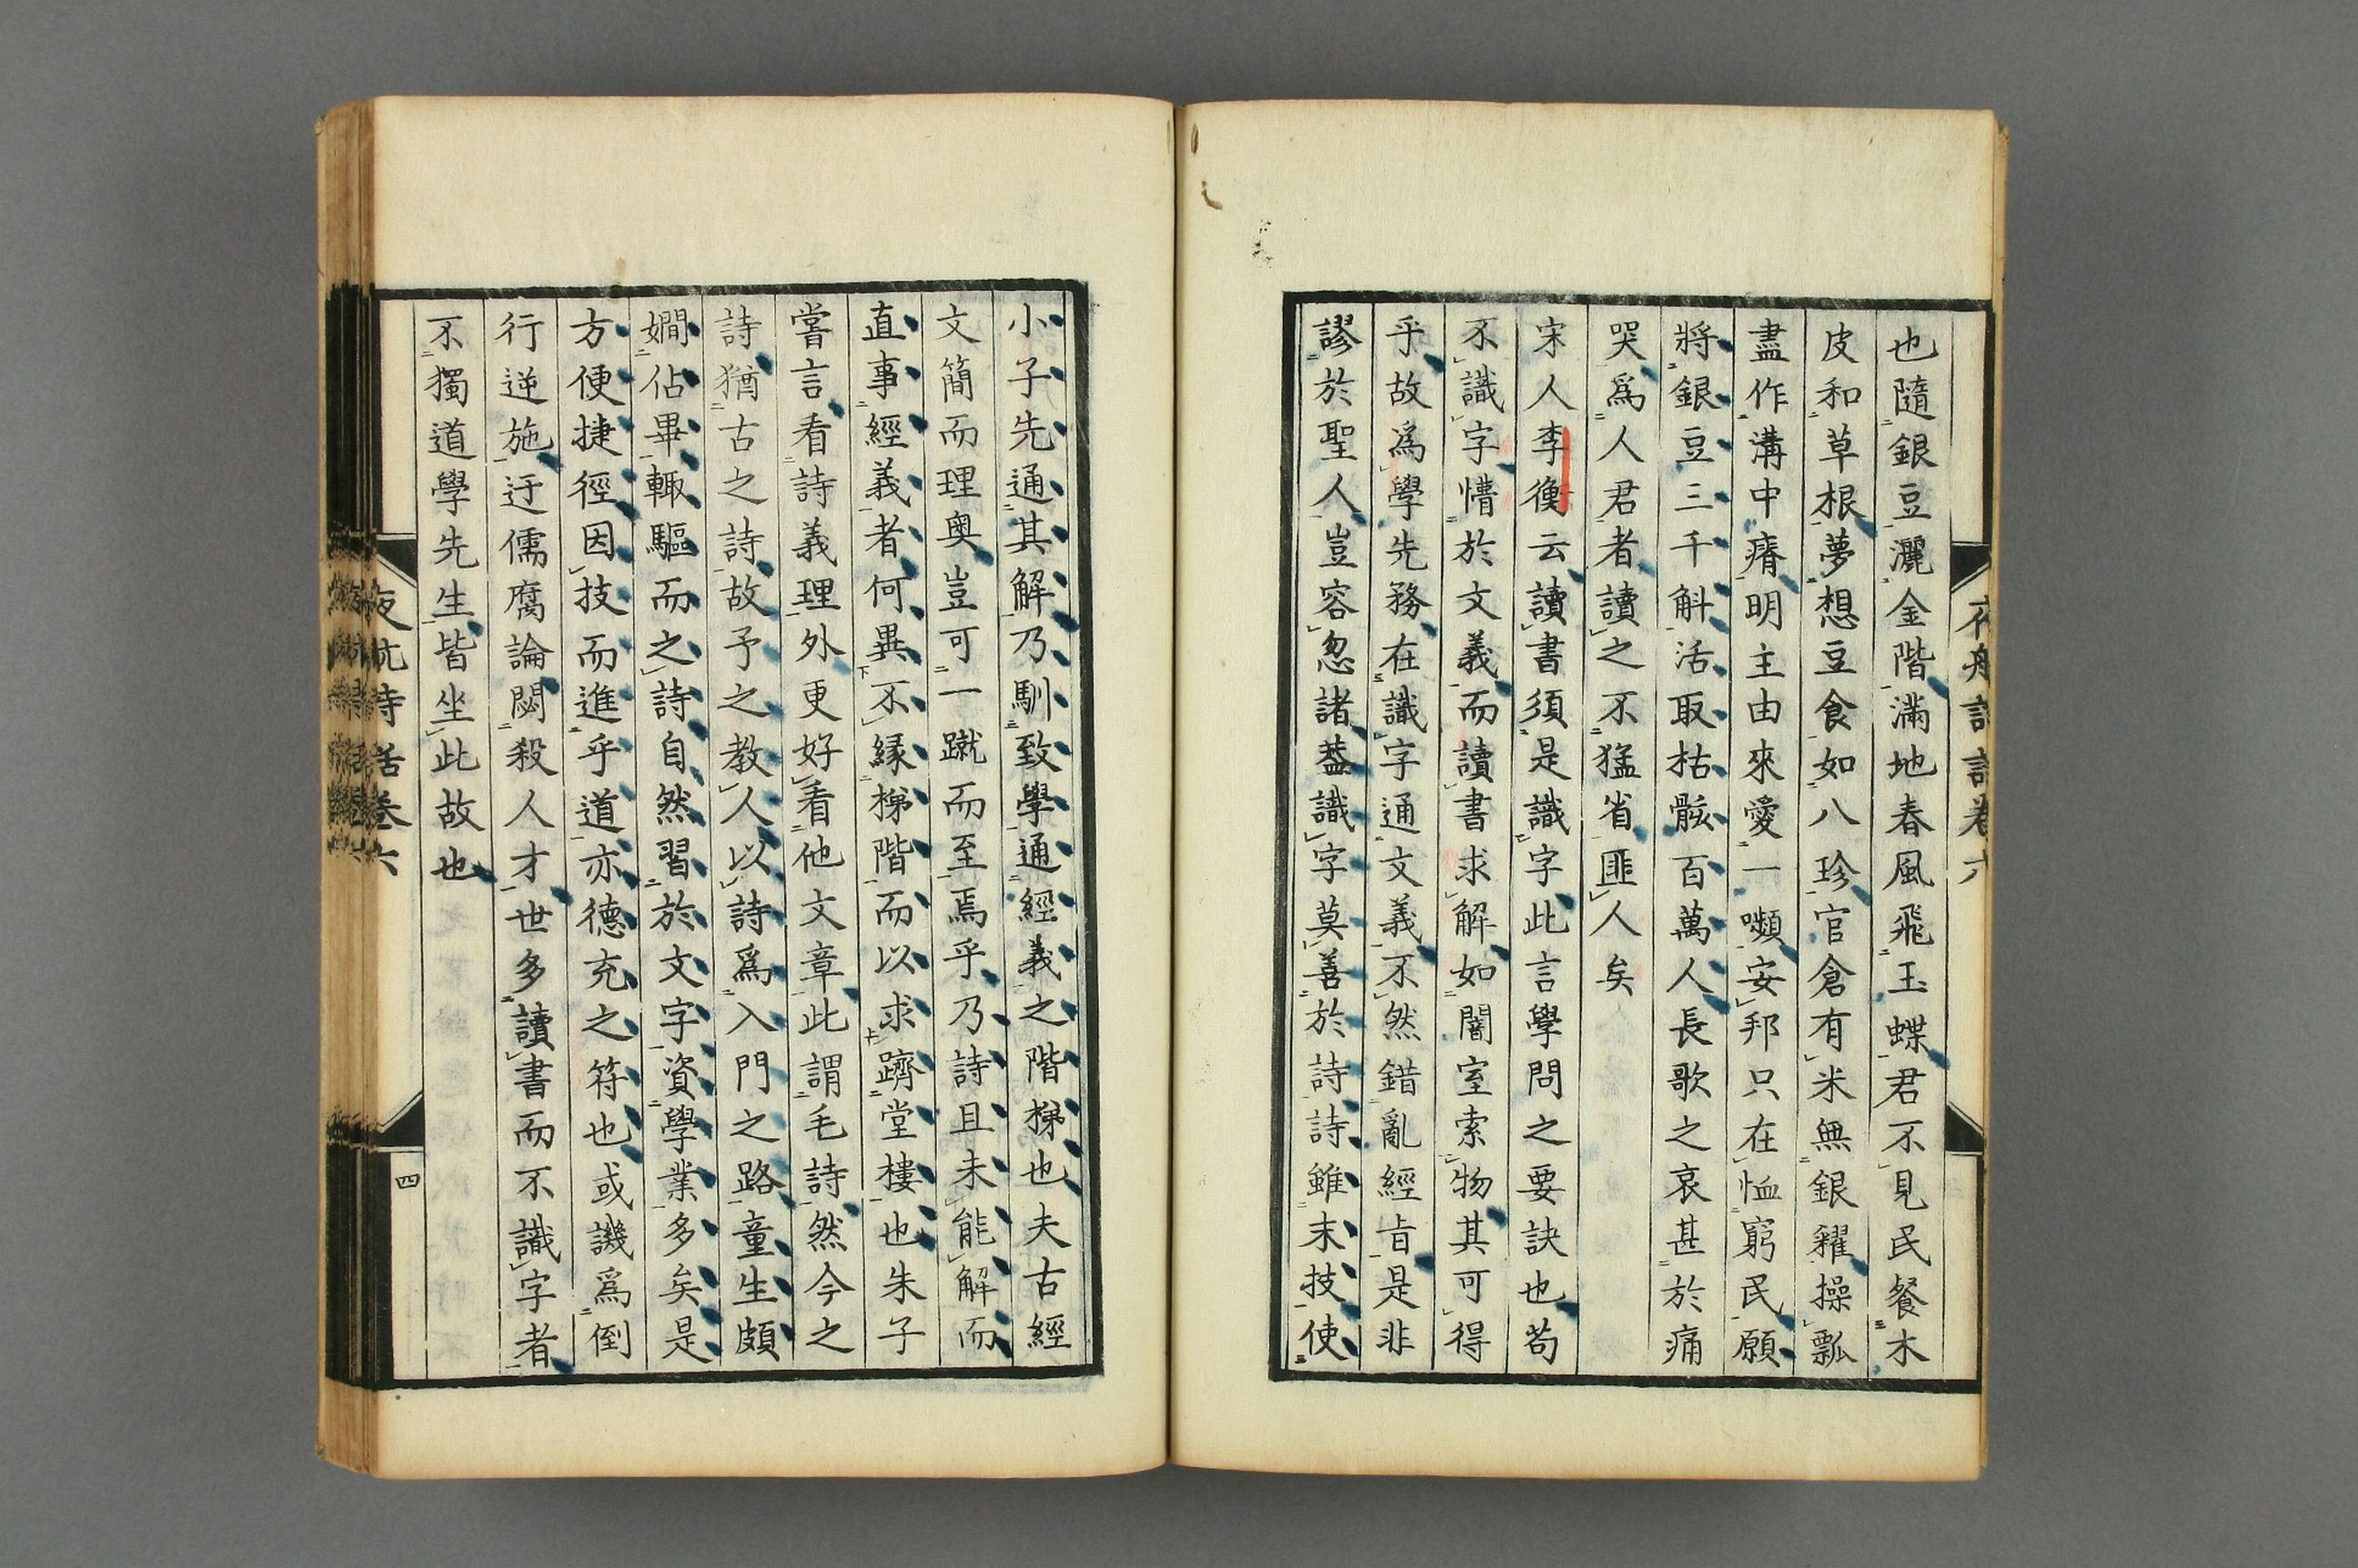 也隨銀豆灑金階滿地春風飛玉蝶君不見民餐木
皮和草根夢想豆食如八珍官倉有米無銀糴操瓢
盡作溝中瘠明主由來愛一嚬安邦只在恤窮民願
將銀豆三千斛活取枯骸百萬人長歌之哀甚於痛
哭爲人君者讀之不猛省匪人矣
宋人李衡云讀書須是識字此言學問之要訣也苟
不識字懵於文義而讀書求解如闇室索物其可得
乎故爲學先務在識字通文義不然錯亂經旨是非
謬於聖人豈容忽諸葢識字莫善於詩詩雖末技使
小子先通其解乃馴致學通經義之階梯也夫古經
文簡而理奥豈可一蹴而至焉乎乃詩且未能解而
直事經義者何異不縁梯階而以求躋堂樓也朱子
嘗言看詩義理外更好看他文章此謂毛詩然今之
詩猶古之詩故予之教人以詩爲入門之路童生頗
嫺佔畢輙驅而之詩自然習於文字資學業多矣是
方便捷徑因技而進乎道亦德充之符也或譏爲倒
行逆施迂儒腐論悶殺人才世多讀書而不識字者
不獨道學先生皆坐此故也
夜航詩話卷六
四